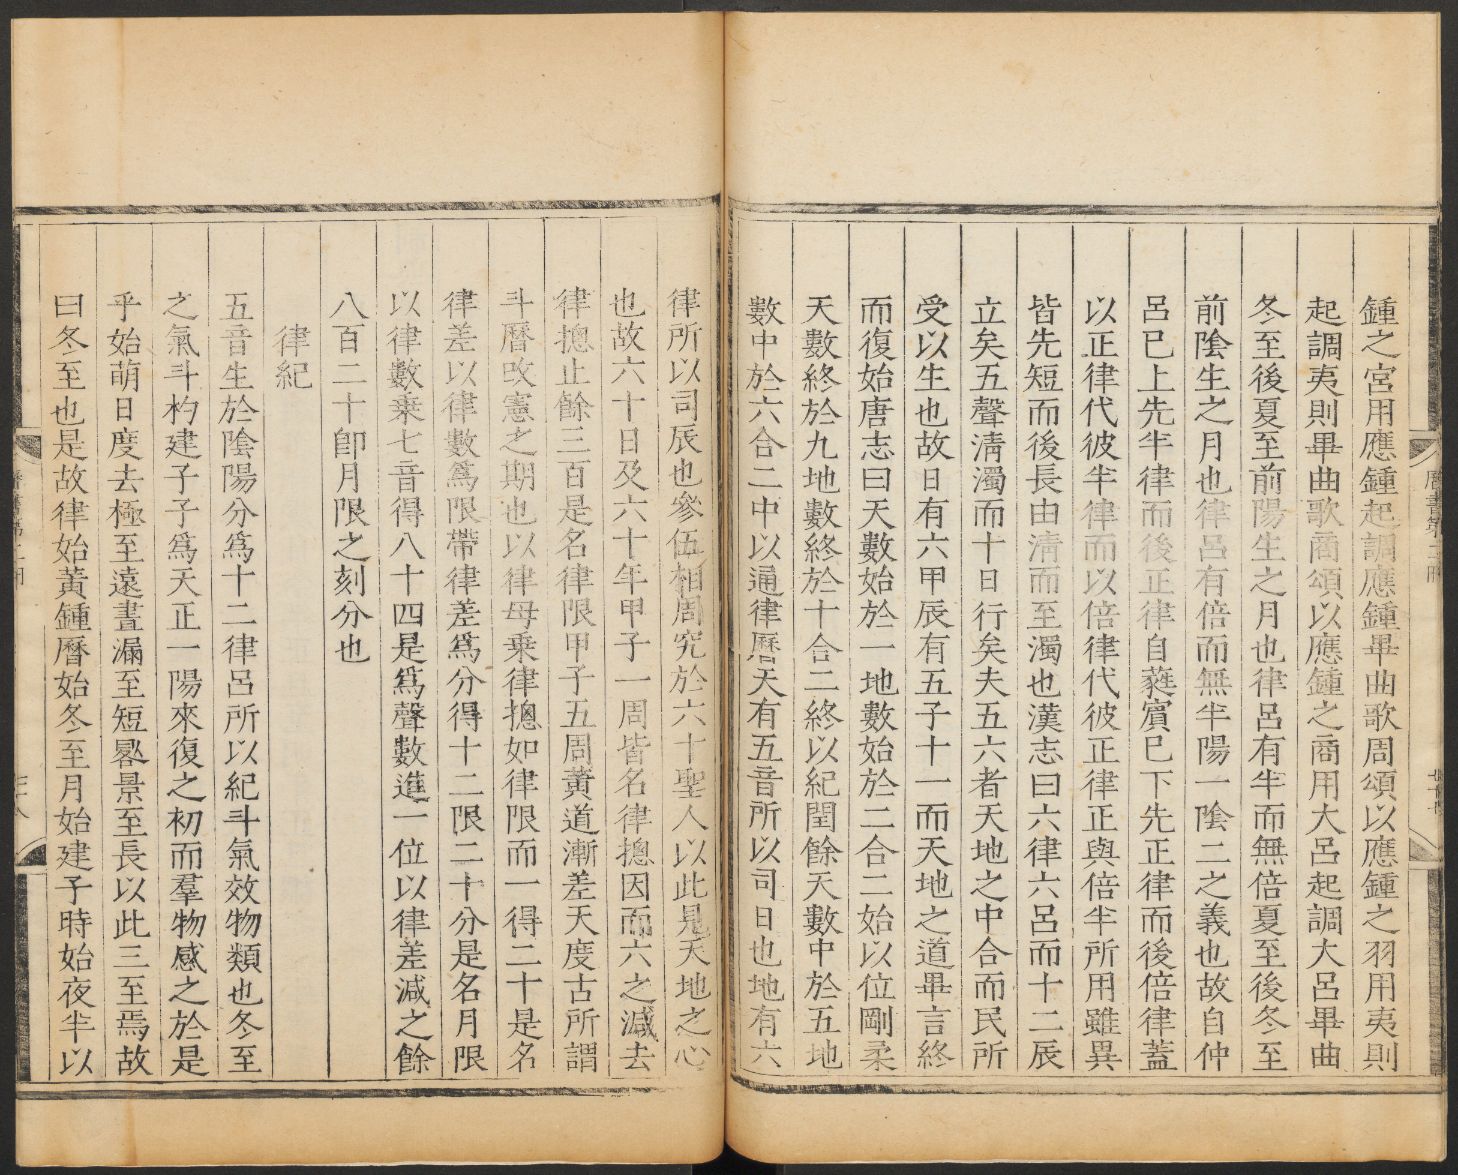 鍾之宮用應鍾起調應鍾畢曲歌周頌以應鍾之羽用夷則
起調夷則畢曲歌商頌以應鍾之商用大呂起調大呂畢曲
冬至後夏至前陽生之月也律呂有半而無倍夏至後冬至
前陰生之月也律呂有倍而無半陽一陰二之義也故自仲
呂已上先半律而後正律自蕤賓已下先正律而後倍律蓋
以正律代彼半律而以倍律代彼正律正與倍半所用雖異
皆先短而後長由淸而至濁也漢志曰六律六呂而十二辰
立矣五聲淸濁而十日行矣夫五六者天地之中合而民所
受以生也故日有六甲辰有五子十一而天地之道畢言終
而復始唐志曰天數始於一地數始於二合二始以位剛柔
天數終於九地數終於十合二終以紀閏餘天數中於五地
數中於六合二中以通律曆天有五音所以司日也地有六
律所以司辰也參伍相周究於六十聖人以此見天地之心
也故六十日及六十年甲子一周皆名律摠因而六之減去
律摠止餘三百是名律限甲子五周黃道漸差天度古所謂
斗曆攺憲之期也以律母乗律摠如律限而一得二十是名
律差以律數爲限帶律差爲分得十二限二十分是名月限
以律數乗七音得八十四是爲聲數進一位以律差減之餘
八百二十卽月限之刻分也
律紀
五音生於陰陽分爲十二律呂所以紀斗氣效物類也冬至
之氣斗杓建子子爲天正一陽來復之初而羣物感之於是
乎始萌日度去極至遠晝漏至短晷景至長以此三至焉故
曰冬至也是故律始黃鍾曆始冬至月始建子時始夜半以